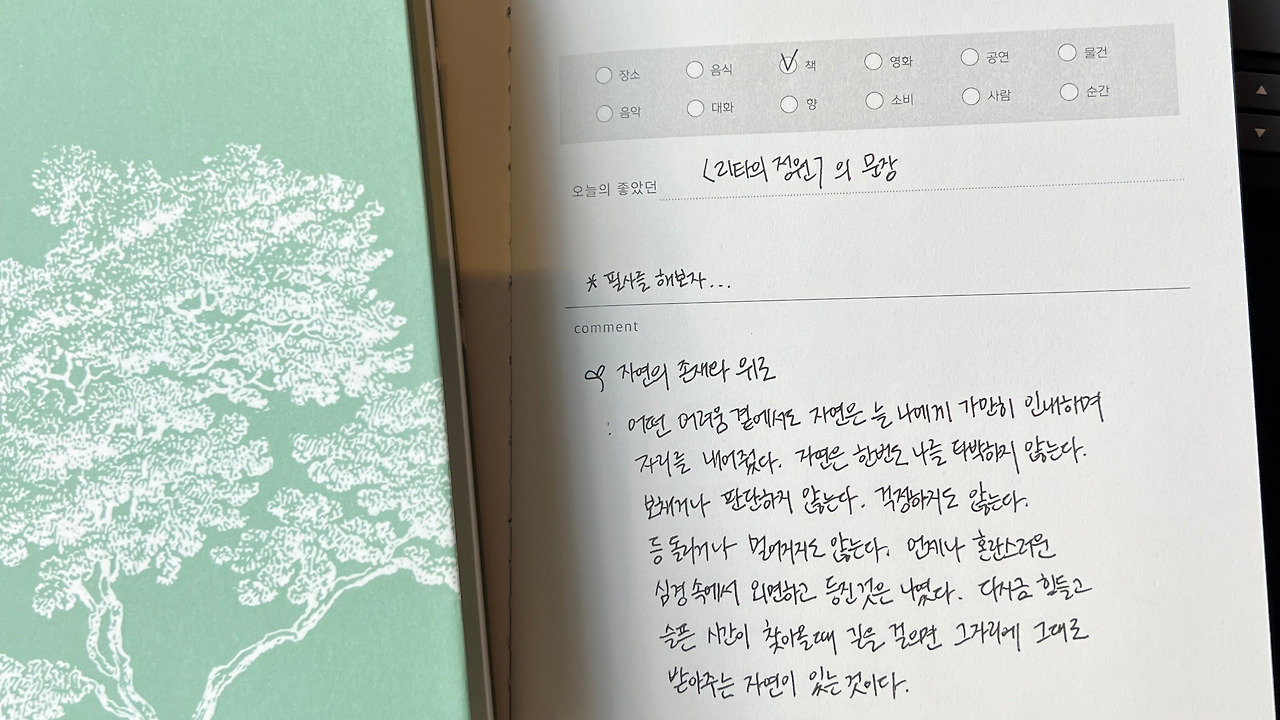 장소 음식 책 영화 공연 물건
음악 대화 향 소비 사람 순간
오늘의 좋았던 <리타의 정원>의 문장
* 필사를 해보자...
comment
자연의 존재와 위로
: 어떤 어려움 곁에서도 자연은 늘 나에게 가만히 인내하며
자리를 내어줬다. 자연은 한번도 나를 타박하지 않는다.
보채거나 판단하지 않는다. 걱정하지도 않는다.
등 돌리거나 멀어지지도 않는다. 언제나 혼란스러운
심경 속에서 외면하고 등진 것은 나였다. 다시금 힘들고
슬픈 시간이 찾아올때 길을 걸으면 그자리에 그대로
받아주는 자연이 있는 것이다.